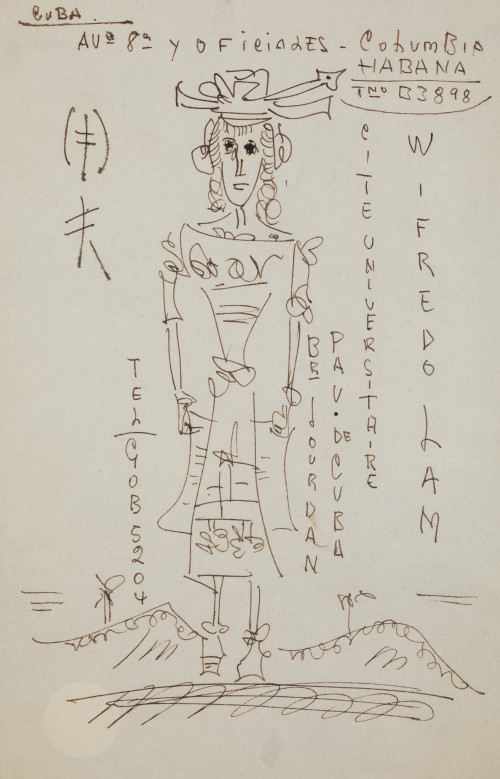 CUBA
AVe 8a y OFICIALES - COLUMBIA
HABANA
TNO B3898
WIFREDO LAM
CITE UNIVERSITAIRE
PAV. DE CUBA
BR JOURDAN
TEL GOB 5204